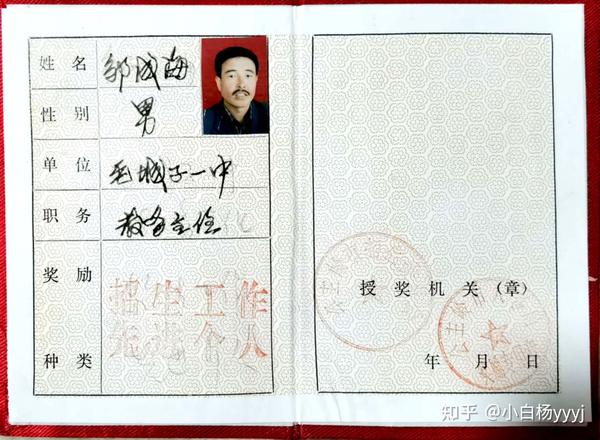 姓名 邹成海
性别 男
单位 毛城子一中
职务 教务主任
奖励 招生工作
先进个人
种类
授奖机关(章)
年 月 日
知乎 @小白杨yyyj